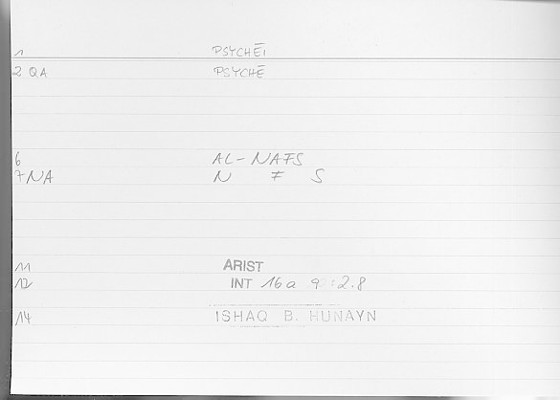 1 PSYCHĒI
2 QA PSYCHĒ
6 AL-NAFS
7 NA N F S
11 ARIST
12 INT 16a 9 : 2.8
14 ISHAQ B. HUNAYN